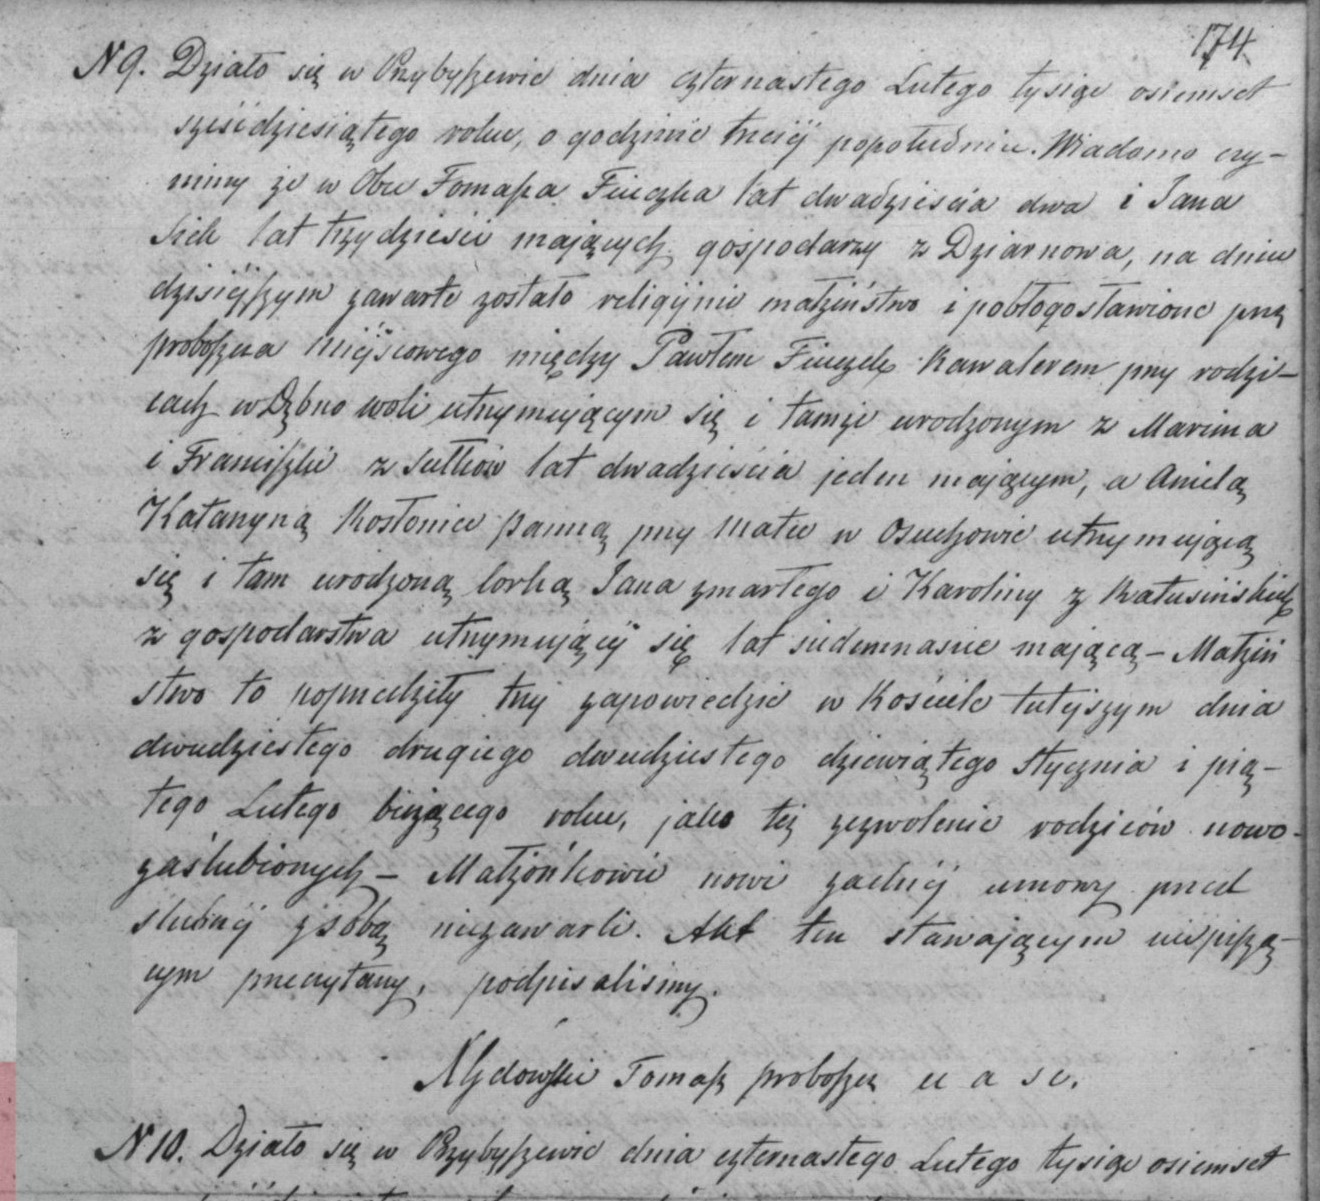 174
N 9. Działo się w Przybyszewie dnia czternastego Lutego tysiąc osiemset
sześćdziesiątego roku, o godzinie trzeciej popołudniu. Wiadomo czy-
nimy że w Obec Tomasza Fiuczka lat dwadzieścia dwa i Jana
Sick lat trzydzieści mających gospodarzy z Dziarnowa, na dniu
dzisiejszym zawarte zostało religijnie małżeństwo i pobłogosławione przez
proboszcza miejscowego między Pawłem Fiuczek kawalerem przy rodzi-
cach w Dębno woli utrzymującym się i tamże urodzonym z Marcina
i Franciszki z lat dwadzieścia jeden mającym, a Anielą
Katarzyną Kosłonice panną przy matce w Osuchowie utrzymującą
się i tam urodzoną corką Jana zmarłego i Karoliny z Kałusińskich
z gospodarstwa utrzymującej się lat siedemnaście mającą – Małżeń
stwo to poprzedziły trzy zapowiedzie w Kościele tutejszym dnia
dwudziestego drugiego dwudziestego dziewiątego Stycznia i pią-
tego Lutego bieżącego roku, jako też zezwolenie rodziców nowo-
zaślubionych – Małżonkowie nowi żadnej umowy przed
ślubnej z sobą niezawarli. Akt ten stawającym niepiszą-
cym przeczytany, podpisaliśmy.
Tomasz proboszcz u a sc.
N 10. Działo się w Przybyszewie dnia czternastego Lutego tysiąc osiemset